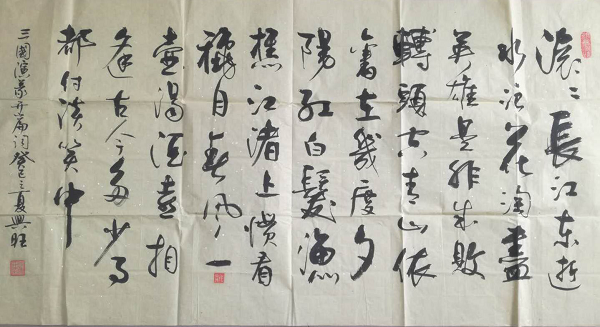 滚〻長江东逝
水浪花淘盡
英雄是非成败
轉頭空青山依
舊在幾度夕
陽红白髮渔
樵江渚上惯看
秋月春风一
壶濁酒喜相
逢古今多少事
都付谈笑中
三國演义开篇词癸巳之夏興旺